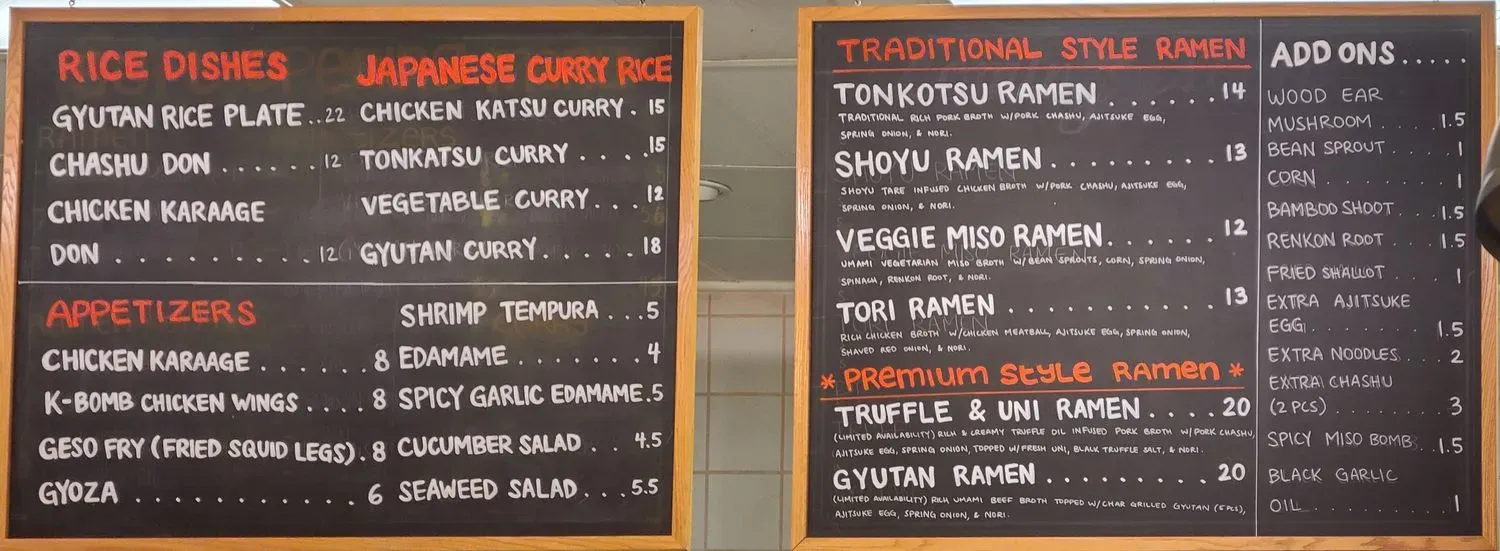 RICE DISHES
GYUTAN RICE PLATE..22
CHASHU DON ......12
CHICKEN KARAAGE
DON ..........12
JAPANESE CURRY RICE
CHICKEN KATSU CURRY.15
TONKATSU CURRY ....15
VEGETABLE CURRY...12
GYUTAN CURRY.....18
APPETIZERS
CHICKEN KARAAGE ......8
K-BOMB CHICKEN WINGS ....8
GESO FRY (FRIED SQUID LEGS).8
GYOZA ...........6
SHRIMP TEMPURA ...5
EDAMAME .......4
SPICY GARLIC EDAMAME.5
CUCUMBER SALAD ..4.5
SEAWEED SALAD...5.5
TRADITIONAL STYLE RAMEN
TONKOTSU RAMEN ......14
TRADITIONAL RICH PORK BROTH W/PORK CHASHU, AJITSUKE EGG,
SPRING ONION, & NORI.
SHOYU RAMEN.........13
SHOYU TARE INFUSED CHICKEN BROTH W/PORK CHASHU, AJITSUKE EGG,
SPRING ONION, & NORI.
VEGGIE MISO RAMEN......12
UMAMI VEGETARIAN MISO BROTH W/BEAN SPROUTS, CORN, SPRING ONION,
SPINACH, RENKON ROOT, & NORI.
TORI RAMEN ...........13
RICH CHICKEN BROTH W/CHICKEN MEATBALL, AJITSUKE EGG, SPRING ONION,
SHAVED RED ONION, & NORI.
* PREMIUM STYLE RAMEN *
TRUFFLE & UNI RAMEN ....20
(LIMITED AVAILABILITY) RICH & CREAMY TRUFFLE OIL INFUSED PORK BROTH W/PORK CHASHU,
AJITSUKE EGG, SPRING ONION, TOPPED W/FRESH UNI, BLACK TRUFFLE SALT, & NORI.
GYUTAN RAMEN .........20
(LIMITED AVAILABILITY) RICH UMAMI BEEF BROTH TOPPED W/CHAR GRILLED GYUTAN (5PCS),
AJITSUKE EGG, SPRING ONION, & NORI.
ADD ONS.....
WOOD EAR
MUSHROOM ....1.5
BEAN SPROUT...1
CORN ........1
BAMBOO SHOOT...1.5
RENKON ROOT...1.5
FRIED SHALLOT .1
EXTRA AJITSUKE
EGG ........1.5
EXTRA NOODLES...2
EXTRA CHASHU
(2 PCS) .......3
SPICY MISO BOMB..1.5
BLACK GARLIC
OIL .........1